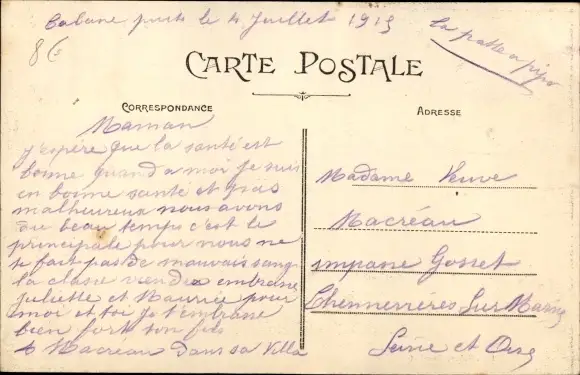 Cabane puits le 4 Juillet 1915
la patte a pipo
86
CARTE POSTALE
CORRESPONDANCE
ADRESSE
Maman
j'epère que la santé est
bonne quand a moi je suis
en bonne santé et pas
malheureux nous avons
du beau temps c'est le
principale pour nous ne
te fait pas de mauvais sang
la classe viendra embrasse
juliette et Maurice pour
moi et toi je t'embrasse
bien fort ton fils
Macréau dans sa Villa
Madame Veuve
Macréau
impasse Gosset
Chennevières Sur Marne
Seine et Oise